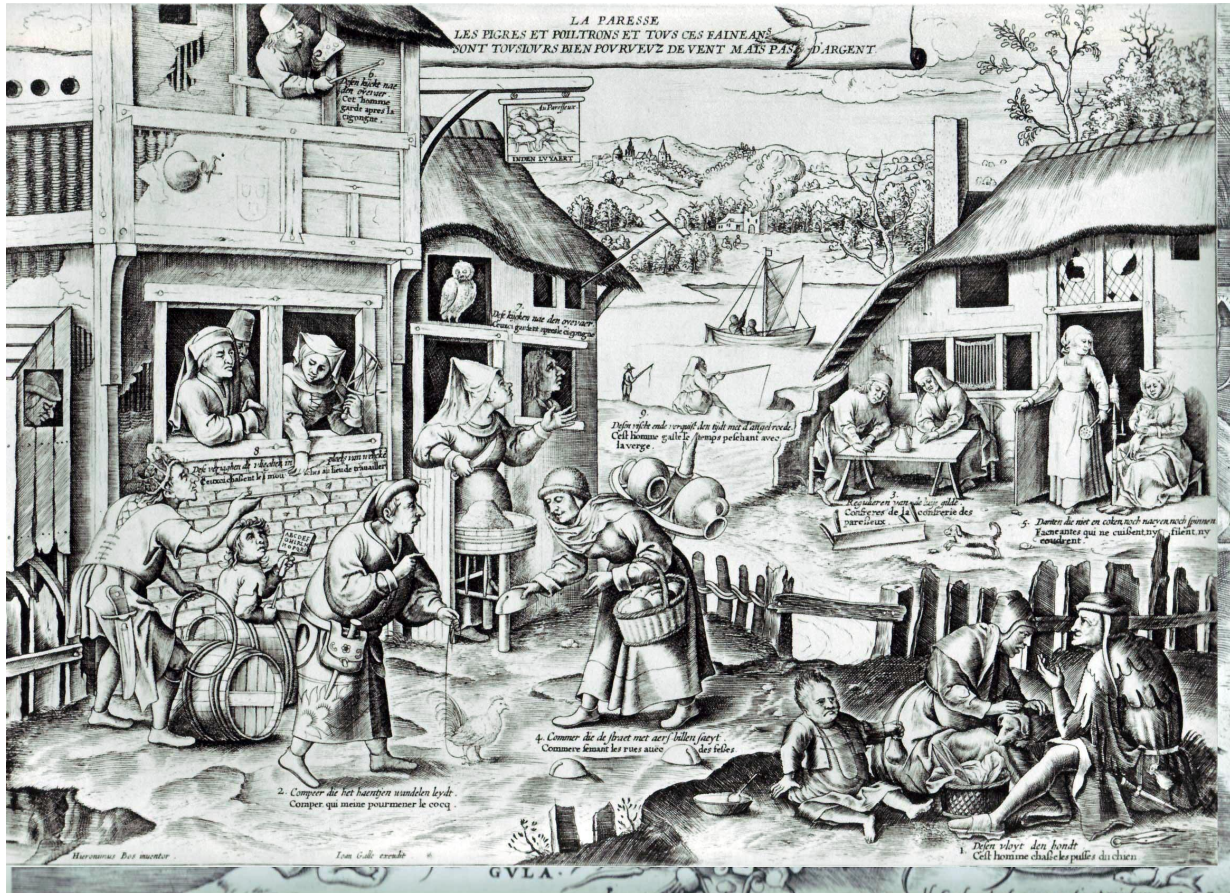 LA PARESSE
LES PIGRES ET POILTRONS ET TOVS CES FAINEANS
SONT TOVSIOVRS BIEN POVRVEVZ DE VENT MAIS PAS D'ARGENT
6.
Desen kijckt nae
den oyevaer.
Cet homme
garde apres la
cigongne.
Au Paresseux
INDEN LVYAERT
7.
Dese kijcken nae den oyevaer
gardent apres la cigongne
8
Dese verjaghen di vlieghen in plaets van wercken
Ceux cy chassent les mou ches au lieu de travailler
ABCDEF
GHIKLM
NOPQRS
9.
Desen vischt ende verquist den tijdt met d'angelroede.
C'est homme gaste le temps peschant avec
la verge.
3.
Reguderen van de luye gilde
Confreres de la confrerie des
paresseux
5. Danten die niet en coken, noch naeyen, noch spinnen.
Faeneantes qui ne cuissent, ny filent, ny
coudrent.
4. Commer die de straet met aers billen saeyt.
Commere semant les rues avec des fesses.
2. Compeer die het haentjen wandelen leydt.
Comper qui meine pourmener le cocq.
1. Desen vloyt den hondt
C'est homme chasse les pusses du chien
Hieronimus Bos inventor
Ioan Galle excudit
GVLA.